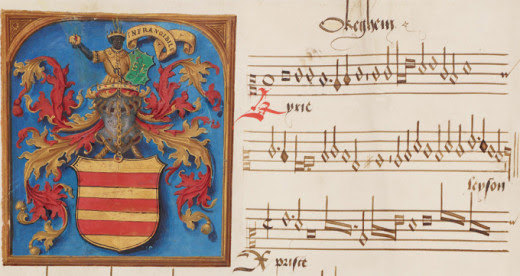 Okeghem
Kyrie
leyson
Xpriste